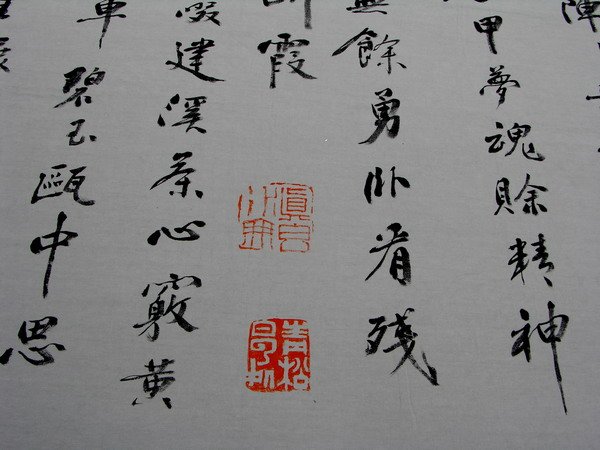 陣
甲夢魂賒精神
無餘勇卧看残
斷霞
啜建溪茶心竅黄
車碧玉甌中思